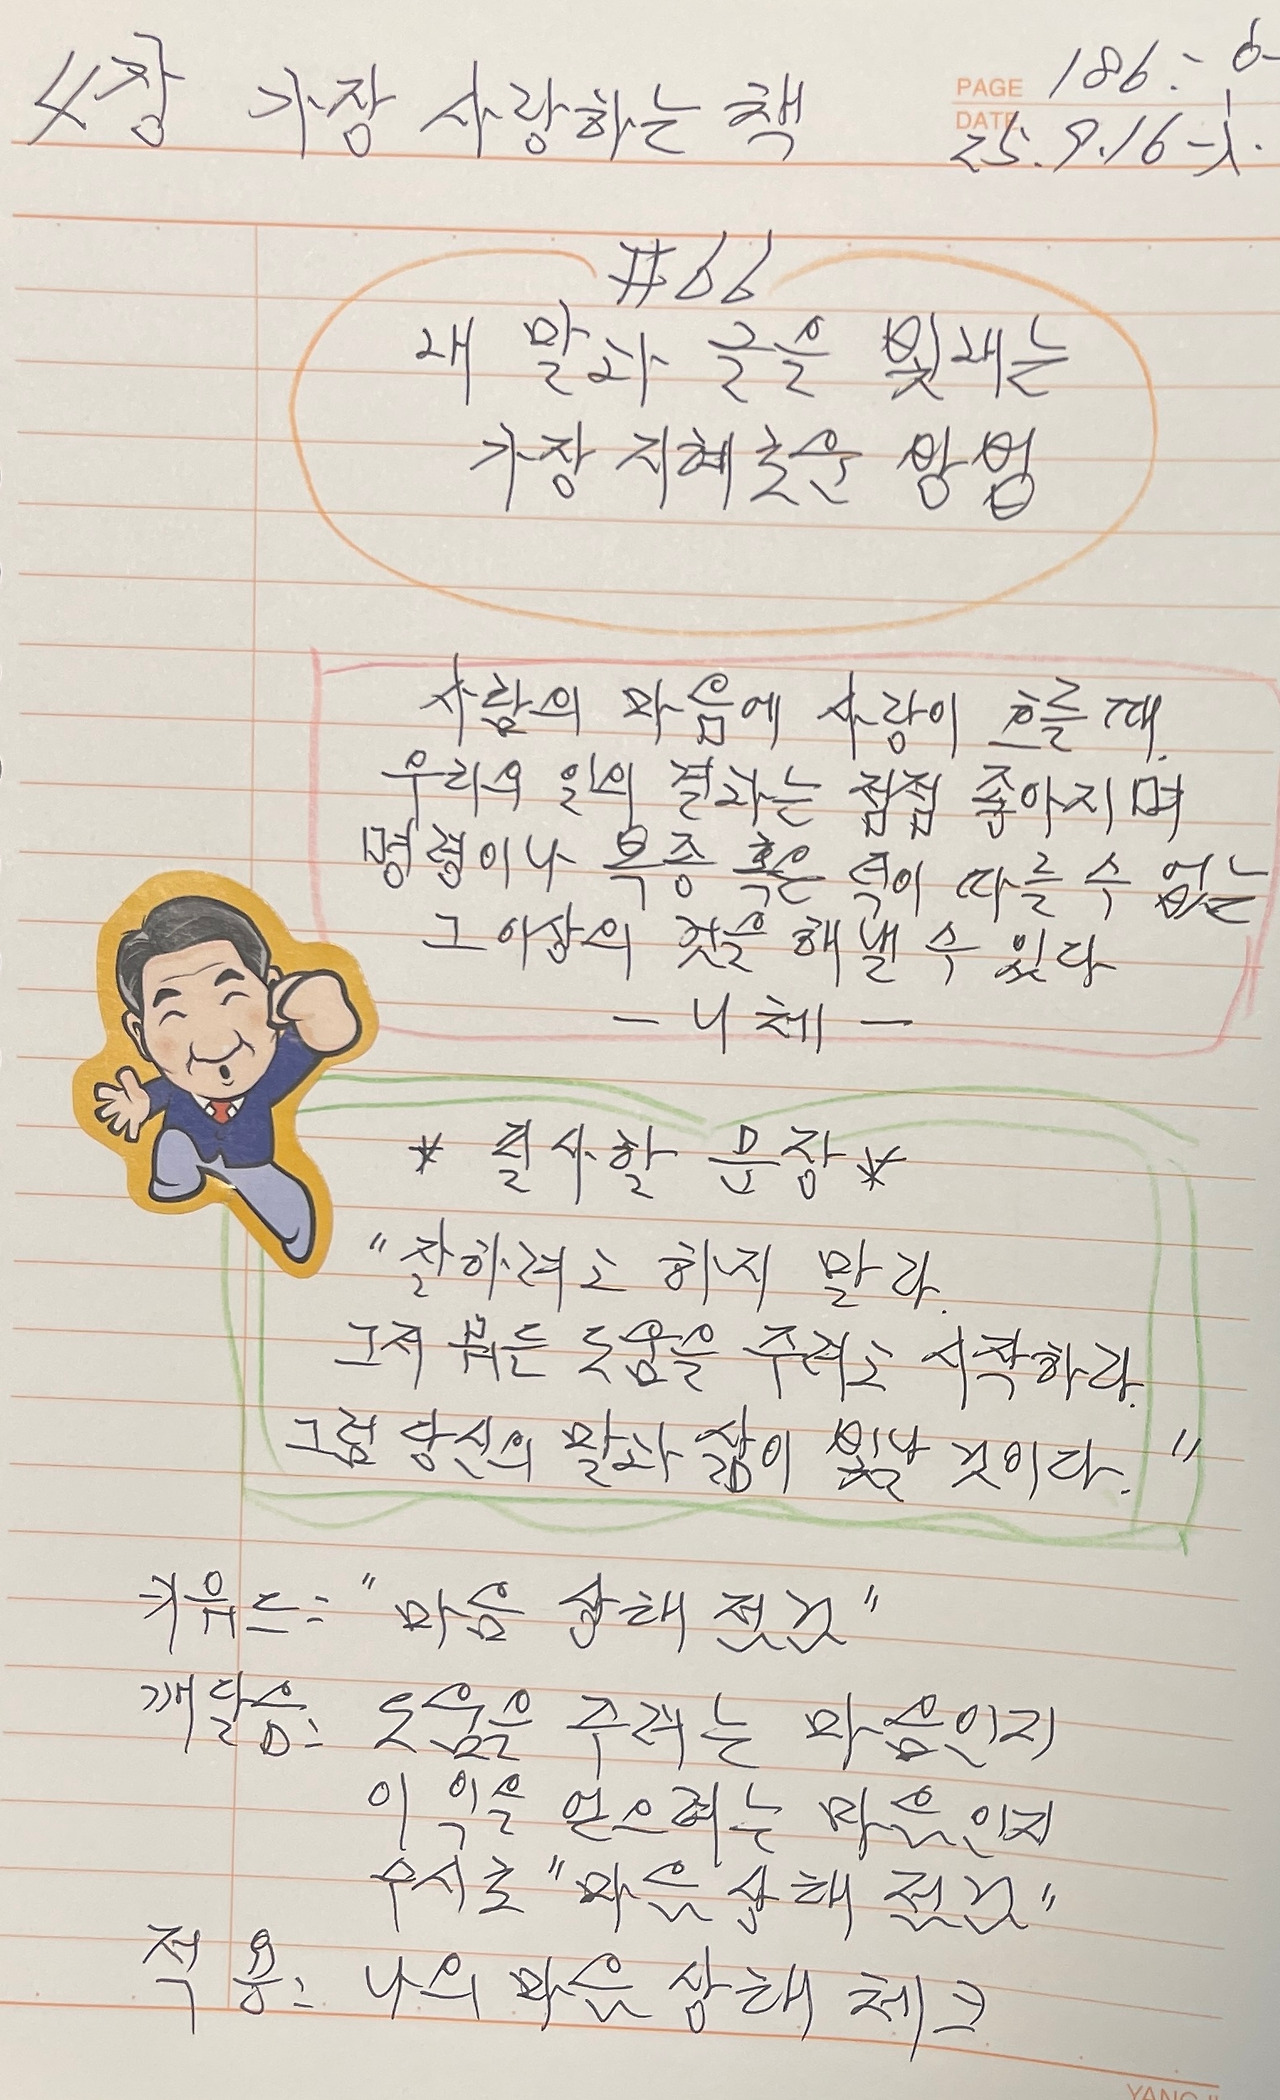 4장 가장 사랑하는 책
PAGE 186
DATE 25. 9. 16
#66
내 말과 글을 빛내는
가장 지혜로운 방법
사람의 마음에 사랑이 흐를 때,
우리의 일의 결과는 점점 좋아지며
명령이나 복종 혹은 덕이 따를 수 없는
그 이상의 것을 해낼 수 있다
- 니체 -
* 필사할 문장 *
"잘하려고 하지 말라.
그저 뭐든 도움을 주려고 시작하라.
그럼 당신의 말과 삶이 빛날 것이다."
키워드: "마음 상태 점검"
깨달음: 도움을 주려는 마음인지
이익을 얻으려는 마음인지
수시로 "마음 상태 점검"
적용: 나의 마음 상태 체크